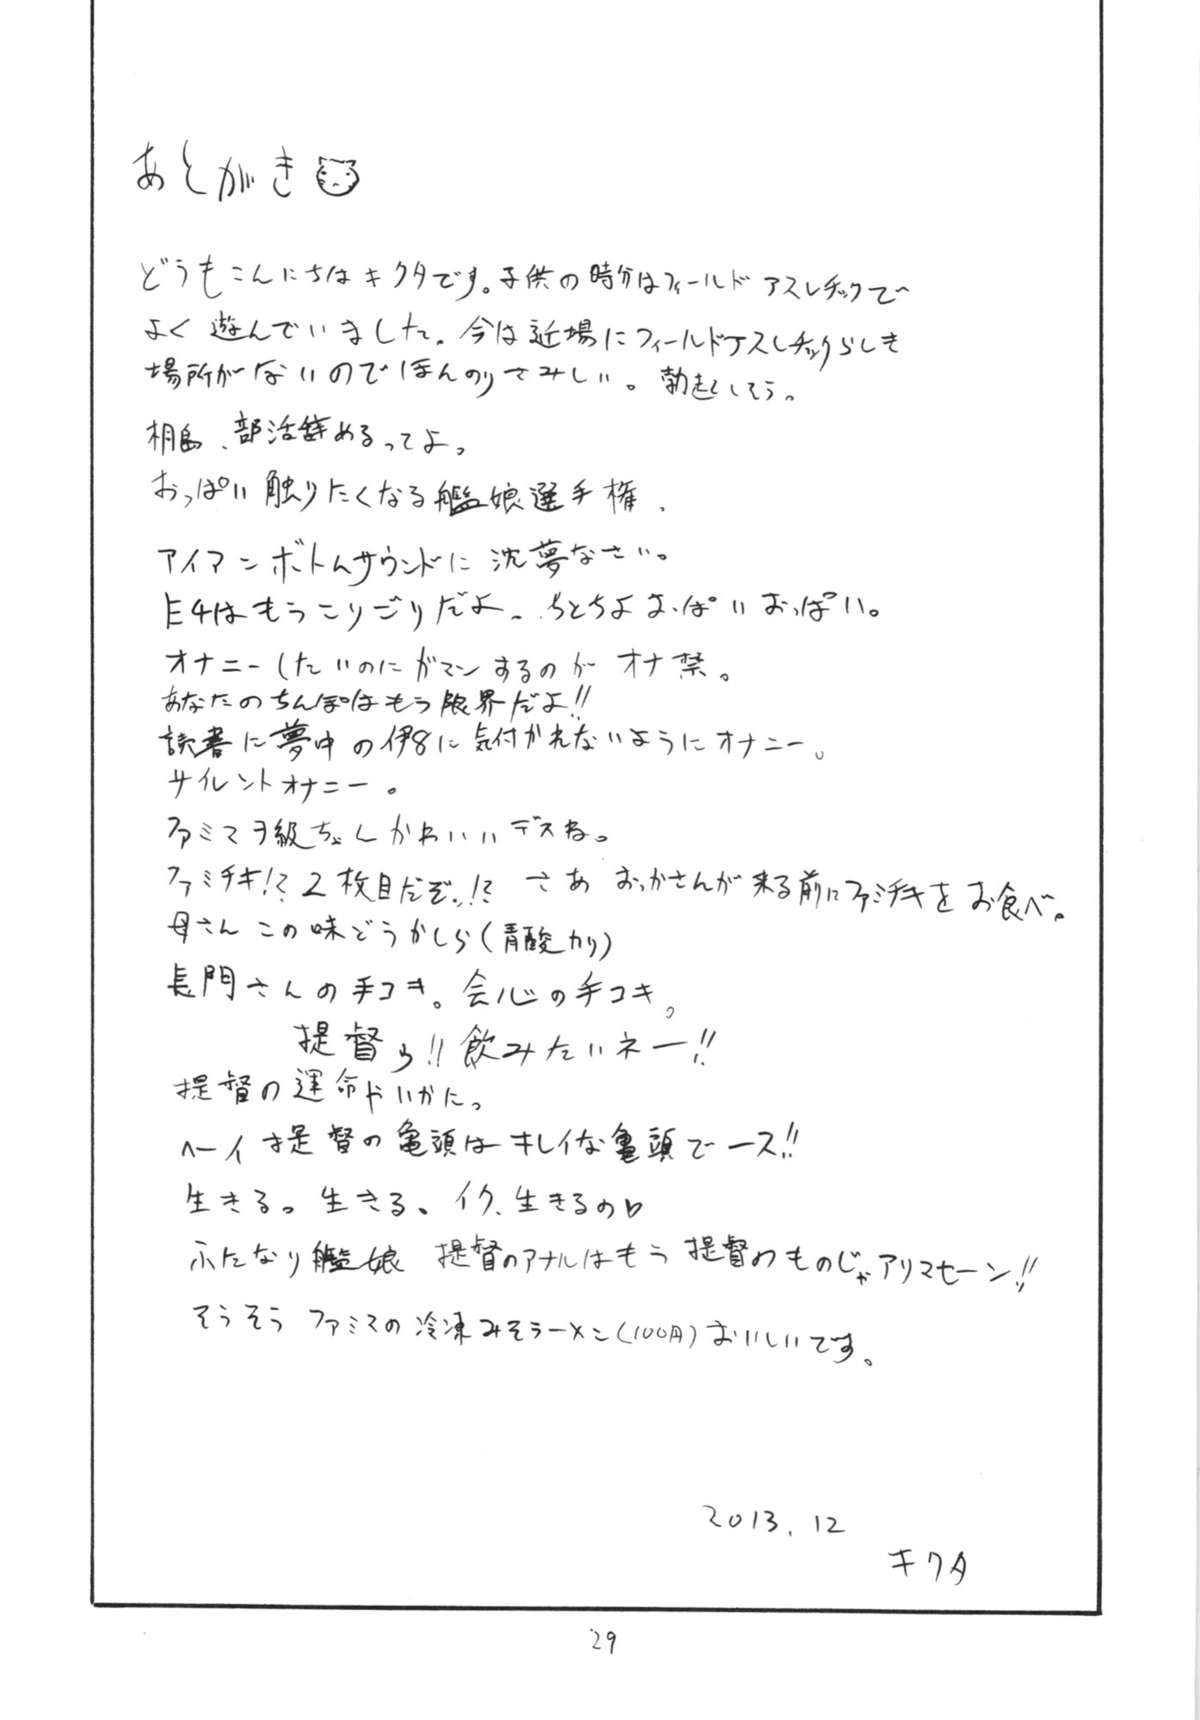 あとがき
どうもこんにちはキクタです。子供の時分はフィールドアスレチックで
よく遊んでいました。今は近場にフィールドアスレチックらしき
場所がないのでほんのりさみしい。勃起しそう。
桐島、部活辞めるってよ。
おっぱい触りたくなる艦娘選手権、
アイアンボトムサウンドに沈夢なさい。
E4はもうこりごりだよ〜。ちとちよおっぱいおっぱい。
オナニーしたいのにガマンするのがオナ禁。
あなたのちんぽはもう限界だよ!!
読書に夢中の伊8に気付かれないようにオナニー。
サイレントオナニー。
ファミマヲ級ちゃんかわいいデスね。
ファミチキ!? 2枚目だぞ..!? さあ おっかさんが来る前にファミチキをお食べ。
母さんこの味どうかしら(青酸カリ)
長門さんの手コキ。会心の手コキ。
提督ゥ!!飲みたいネー!!
提督の運命やいかに。
ヘーイ提督の亀頭はキレイな亀頭でース!!
生きる。生きる。イク、生きるの♡
ふたなり艦娘 提督のアナルはもう提督のものじゃアリマセーン!!
そうそうファミマの冷凍みそラーメン(100円)おいしいです。
2013.12
キクタ
29